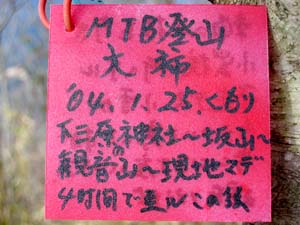 MTB登山
大
'04.1.25.くもり
下三原神社～坂山～
観音山～現地マデ
4時間で